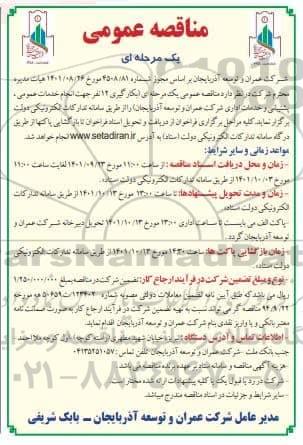 مناقصه عمومی
یک مرحله ای
شرکت عمران و توسعه آذربایجان بر اساس مجوز شماره ۴۵۰۸/۸۱ مورخ ۱۴۰۱/۰۸/۲۶ هیات مدیره
محترم شرکت در نظر دارد مناقصه عمومی یک مرحله ای بکارگیری ۱۲ نفر جهت انجام خدمات عمومی،
پشتیبانی و خدمات اداری شرکت عمران و توسعه آذربایجان را از طریق سامانه تدارکات الکترونیکی دولت
برگزار نماید. کلیه مراحل برگزاری فراخوان از دریافت و تحویل اسناد فراخوان تا بازگشایی پاکتها از طریق
درگاه سامانه تدارکات الکترونیکی دولت (ستاد) به آدرس www.setadiran.ir انجام خواهد شد.
مواعد زمانی و سایر شرایط:
- زمان و محل دریافت اسناد مناقصه: از ساعت ۱۱:۰۰ مورخ ۱۴۰۱/۰۹/۲۳ لغایت ساعت ۱۱:۰۰
مورخ ۱۴۰۱/۱۰/۰۳ از طریق سامانه تدارکات الکترونیکی دولت (ستاد).
- زمان و مدت تحویل پیشنهادها: تا ساعت ۱۳:۰۰ مورخ ۱۴۰۱/۱۰/۱۳ از طریق سامانه تدارکات
الکترونیکی دولت ستاد.
-پاکت الف می بایست تا ساعت اداری ۱۳:۰۰ مورخ ۱۴۰۱/۱۰/۱۳ تحویل دبیرخانه شرکت عمران و
توسعه آذربایجان گردد.
- زمان بازگشایی پاکت ها: ساعت ۱۴:۳۰ مورخ ۱۴۰۱/۱۰/۱۳ از طریق سامانه تدارکات الکترونیکی
دولت ستاد.
- نوع و مبلغ تضمین شرکت در فرآیند ارجاع کار: تضمین شرکت در مناقصه به مبلغ ۱/۲۵۰/۰۰۰/۰۰۰
ریال می باشد که طبق آیین نامه تضمین معاملات دولتی مصوبه شماره ۱۲۳۴۰۲/ت۵۰۶۵۹ه مورخه
۹۴/۹/۲۲ که متقاضی می تواند نسبت به تهیه تضمین شرکت در فرآیند ارجاع کار به صورت ضمانت نامه
معتبر بانکی و یا واریز نقدی بنام شرکت عمران و توسعه آذربایجان اقدام نماید.
- اطلاعات تماس و آدرس دستگاه: تبریز، خیابان شهید منتظری (راسته کوچه) اول کوچه ملا احمد
جنب بانک ملت – شرکت عمران و توسعه آذربایجان تلفن تماس: ۰۴۱۳۵۲۵۱۰۵۷
- هزینه آگهی مناقصه و سامانه ستاد بر عهده برنده مناقصه می باشد.
- شرکت در رد یا قبول یک یا کلیه پیشنهادات ارائه شده مختار می باشد.
- سایر شرایط و جزئیات در اسناد مناقصه مندرج میباشد.
مدیر عامل شرکت عمران و توسعه آذربایجان ــ بابک شریفی